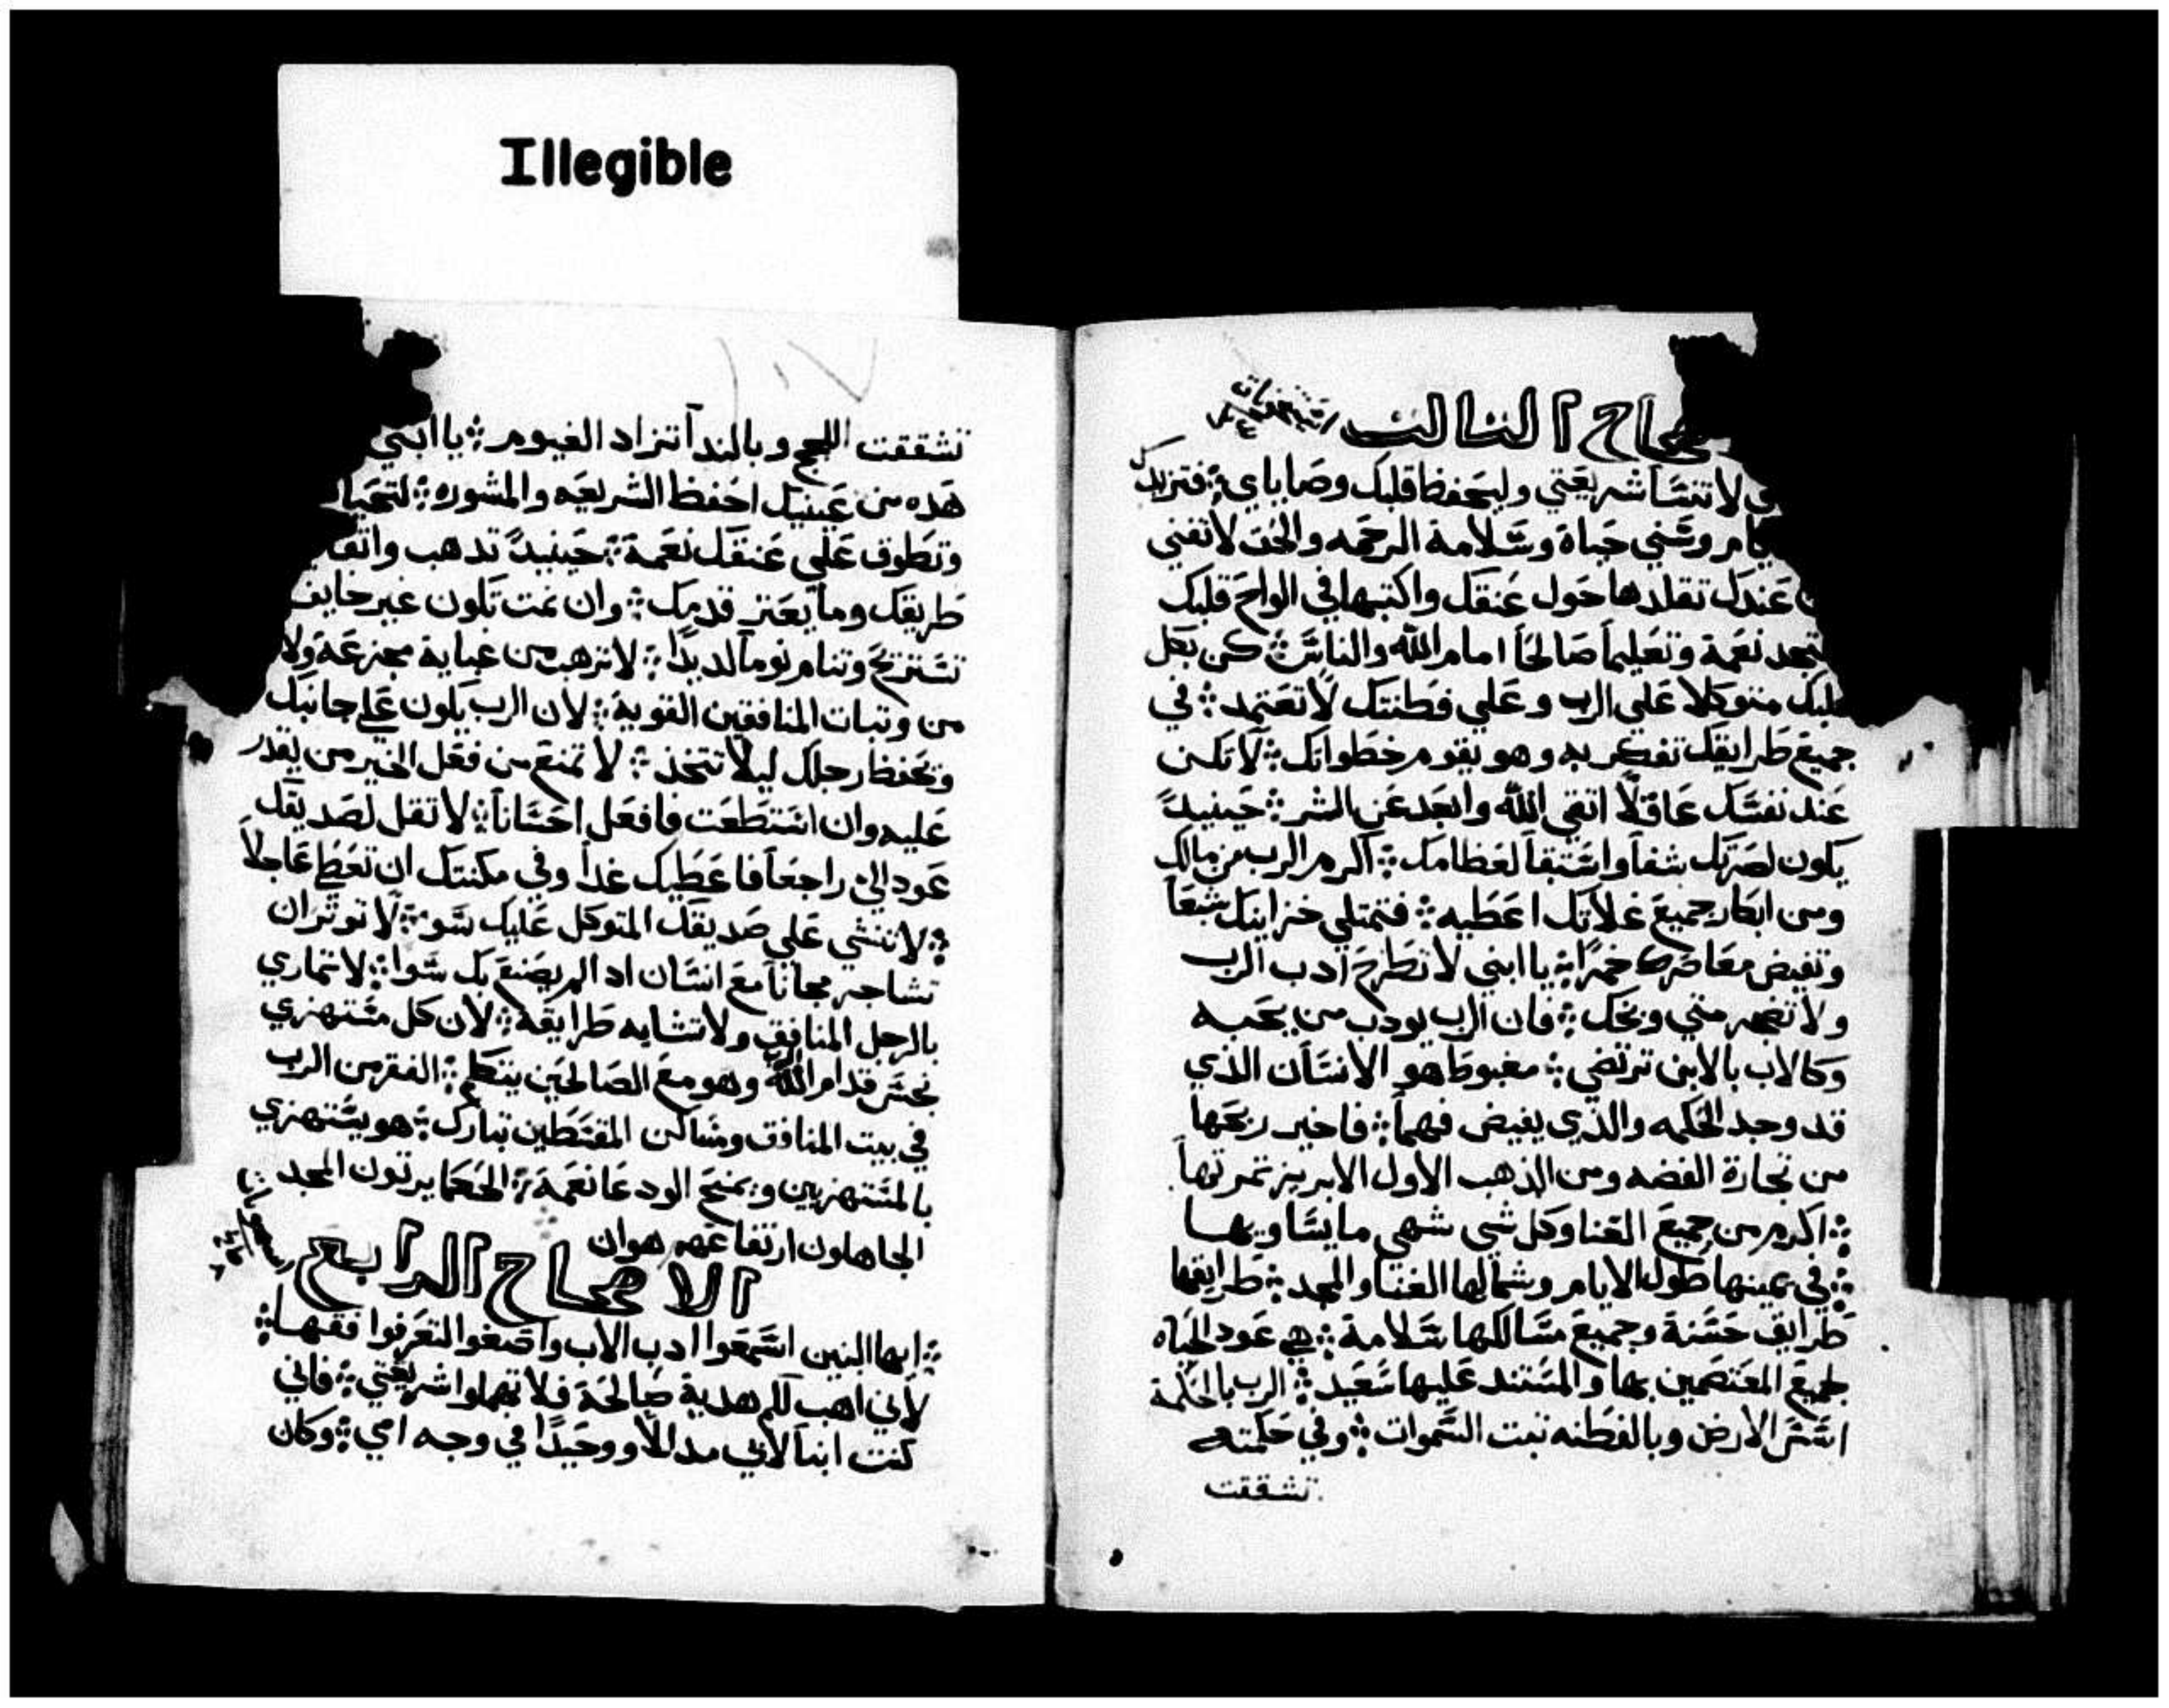 Illegible
ـحاح الثالث
لا تنسا شريعتي وليحفظ قلبك وصاياي ፨ فتزيدك
وسني حياة وسلامة الرحمه والحق لا تفني
عندك تقلدها حول عنقك واكتبها في الواح قلبك
فتجد نعمة وتعليماً صالحاً امام الله والناس ፨ كن بكل
قلبك متوكلا علي الرب وعلي فطنتك لا تعتمد ፨ في
جميع طرايقك تفكر به وهو يقوم خطواتك ፨ لا تكن
عند نفسك عاقلاً اتقي الله وابعد عن الشر ፨ حينيدً
يكون لصرتك شفاً واستقاً لعظامك ፨ اكرم الرب من مالك
ومن ابكار جميع غلاتك اعطيه ፨ فتمتلي خزاينك شبعاً
وتفيض معاصرك خمراً ፨ يا ابني لا تطرح ادب الرب
ولا تضجر متي وبخك ፨ فان الرب يودب من يحبه
وكالاب بالابن ترتضي ፨ مغبوط هو الانسان الذي
قد وجد الحكمه والذي يفيض فهماً ፨ فاخير ربحها
من تجارة الفضه ومن الذهب الاول الابريز تمرتها
፨ اكرم من جميع الغنا وكل شي شهي ما يساويها
፨ في يمينها طول الايام وشمالها الغنا والمجد ፨ طرايقها
طرايق حسنة وجميع مسالكها سلامة ፨ هي عود الحياه
لجميع المعتصمين بها والمستند عليها سعيد ፨ الرب بالحكمة
اسس الارض وبالفطنه تبت السموات ፨ وفي حكمته
تشققت
١٠٧
تشققت اللجج وبالندا تتزاد الغيوم ፨ يا ابني
هده من عينيك احفظ الشريعه والمشوره ፨ لتحيا
وتطوق علي عنقك نعمة ፨ حينيدً تدهب واتق
طريقك وما يعتر قدمك ፨ وان نمت تكون غير خايف
تستريح وتنام نوماً لديداً ፨ لا ترهب من غباية مجزعة ولا
من وتبات المنافقين القوية ፨ لان الرب يكون علي جانبك
وتحفظ رجلك ليلا تتخذ ፨ لا تمنع من فعل الخير من يقدر
عليه وان استطعت فافعل احساناً ፨ لا تقل لصديقك
عود الي راجعاً فاعطيك غداً وفي مكنتك ان تعطي عاجلاً
፨ لا تنشي علي صديقك المتوكل عليك سو ፨ لا توثر ان
تشاجر مجاناً مع انسان اد الم يصنع بك سوا ፨ لا تماري
بالرجل المنافق ولا تشابه طرايقه ፨ لان كل مستهزي
نجس قدام الله وهو مع الصالحين يتكلم ፨ الفقر من الرب
في بيت المنافق ومساكن المقسطين تبارك ፨ هو يستهزي
بالمستهزيين ويمنح الودعا نعمة ፨ الحكما يرتون المجد
الجاهلون ارتفاعهم هوان
الاصحاح الرابع
፨ ايها البنين اسمعوا ادب الاب واصغوا لتعرفوا فقها ፨
لاني اهب لكم هدية صالحة فلا تهملوا شريعتي ፨ فاني
كنت ابناً لابي مدللاً ووحيداً في وجه امي ፨ وكان